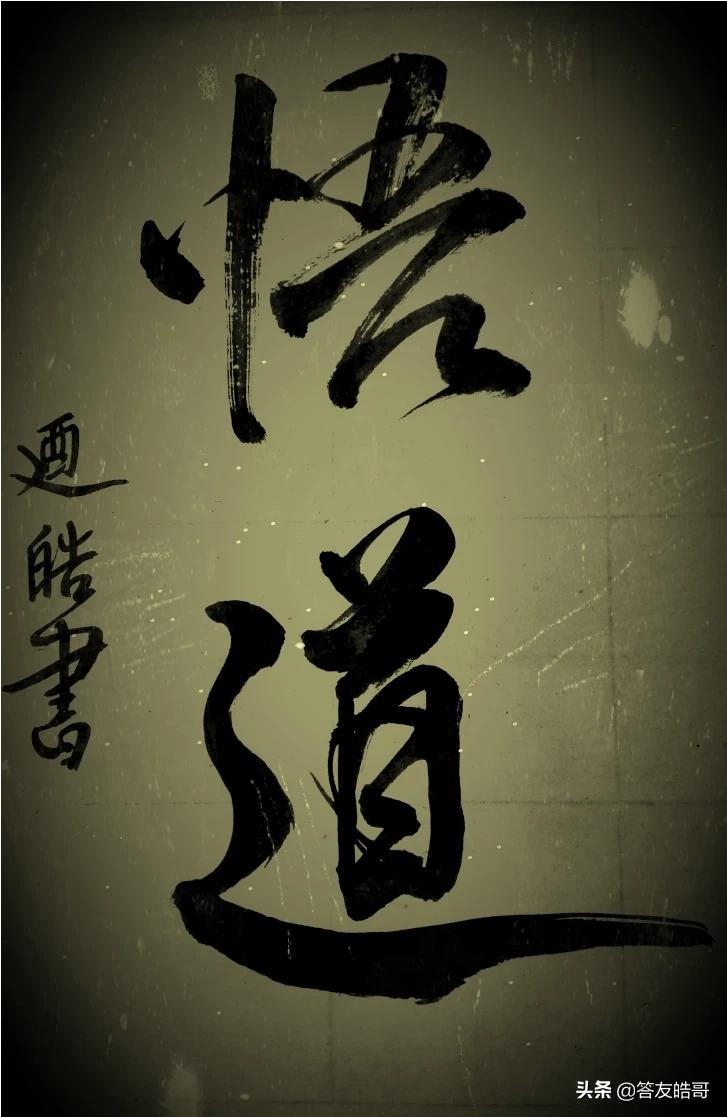 悟道
廼皓書
头条 @答友皓哥